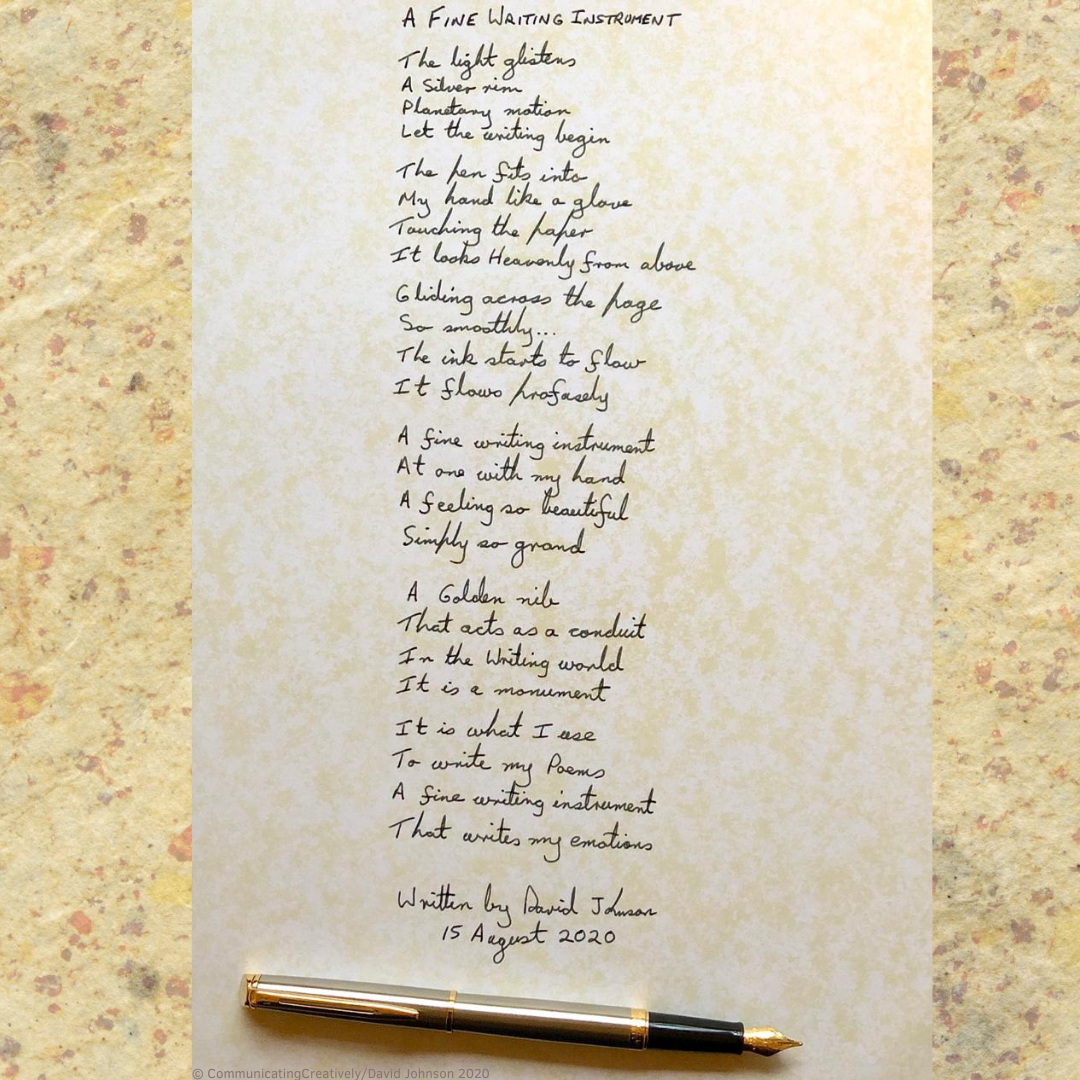 A FINE WRITING INSTRUMENT
The light glistens
A Silver rim
Planetary motion
Let the writing begin
The pen fits into
My hand like a glove
Touching the paper
It looks Heavenly from above
Gliding across the page
So smoothly...
The ink starts to flow
It flows profusely
A fine writing instrument
At one with my hand
A feeling so beautiful
Simply so grand
A Golden nib
That acts as a conduit
In the Writing world
It is a monument
It is what I use
To write my Poems
A fine writing instrument
That writes my emotions
Written by David Johnson
15 August 2020
© CommunicatingCreatively/David Johnson 2020